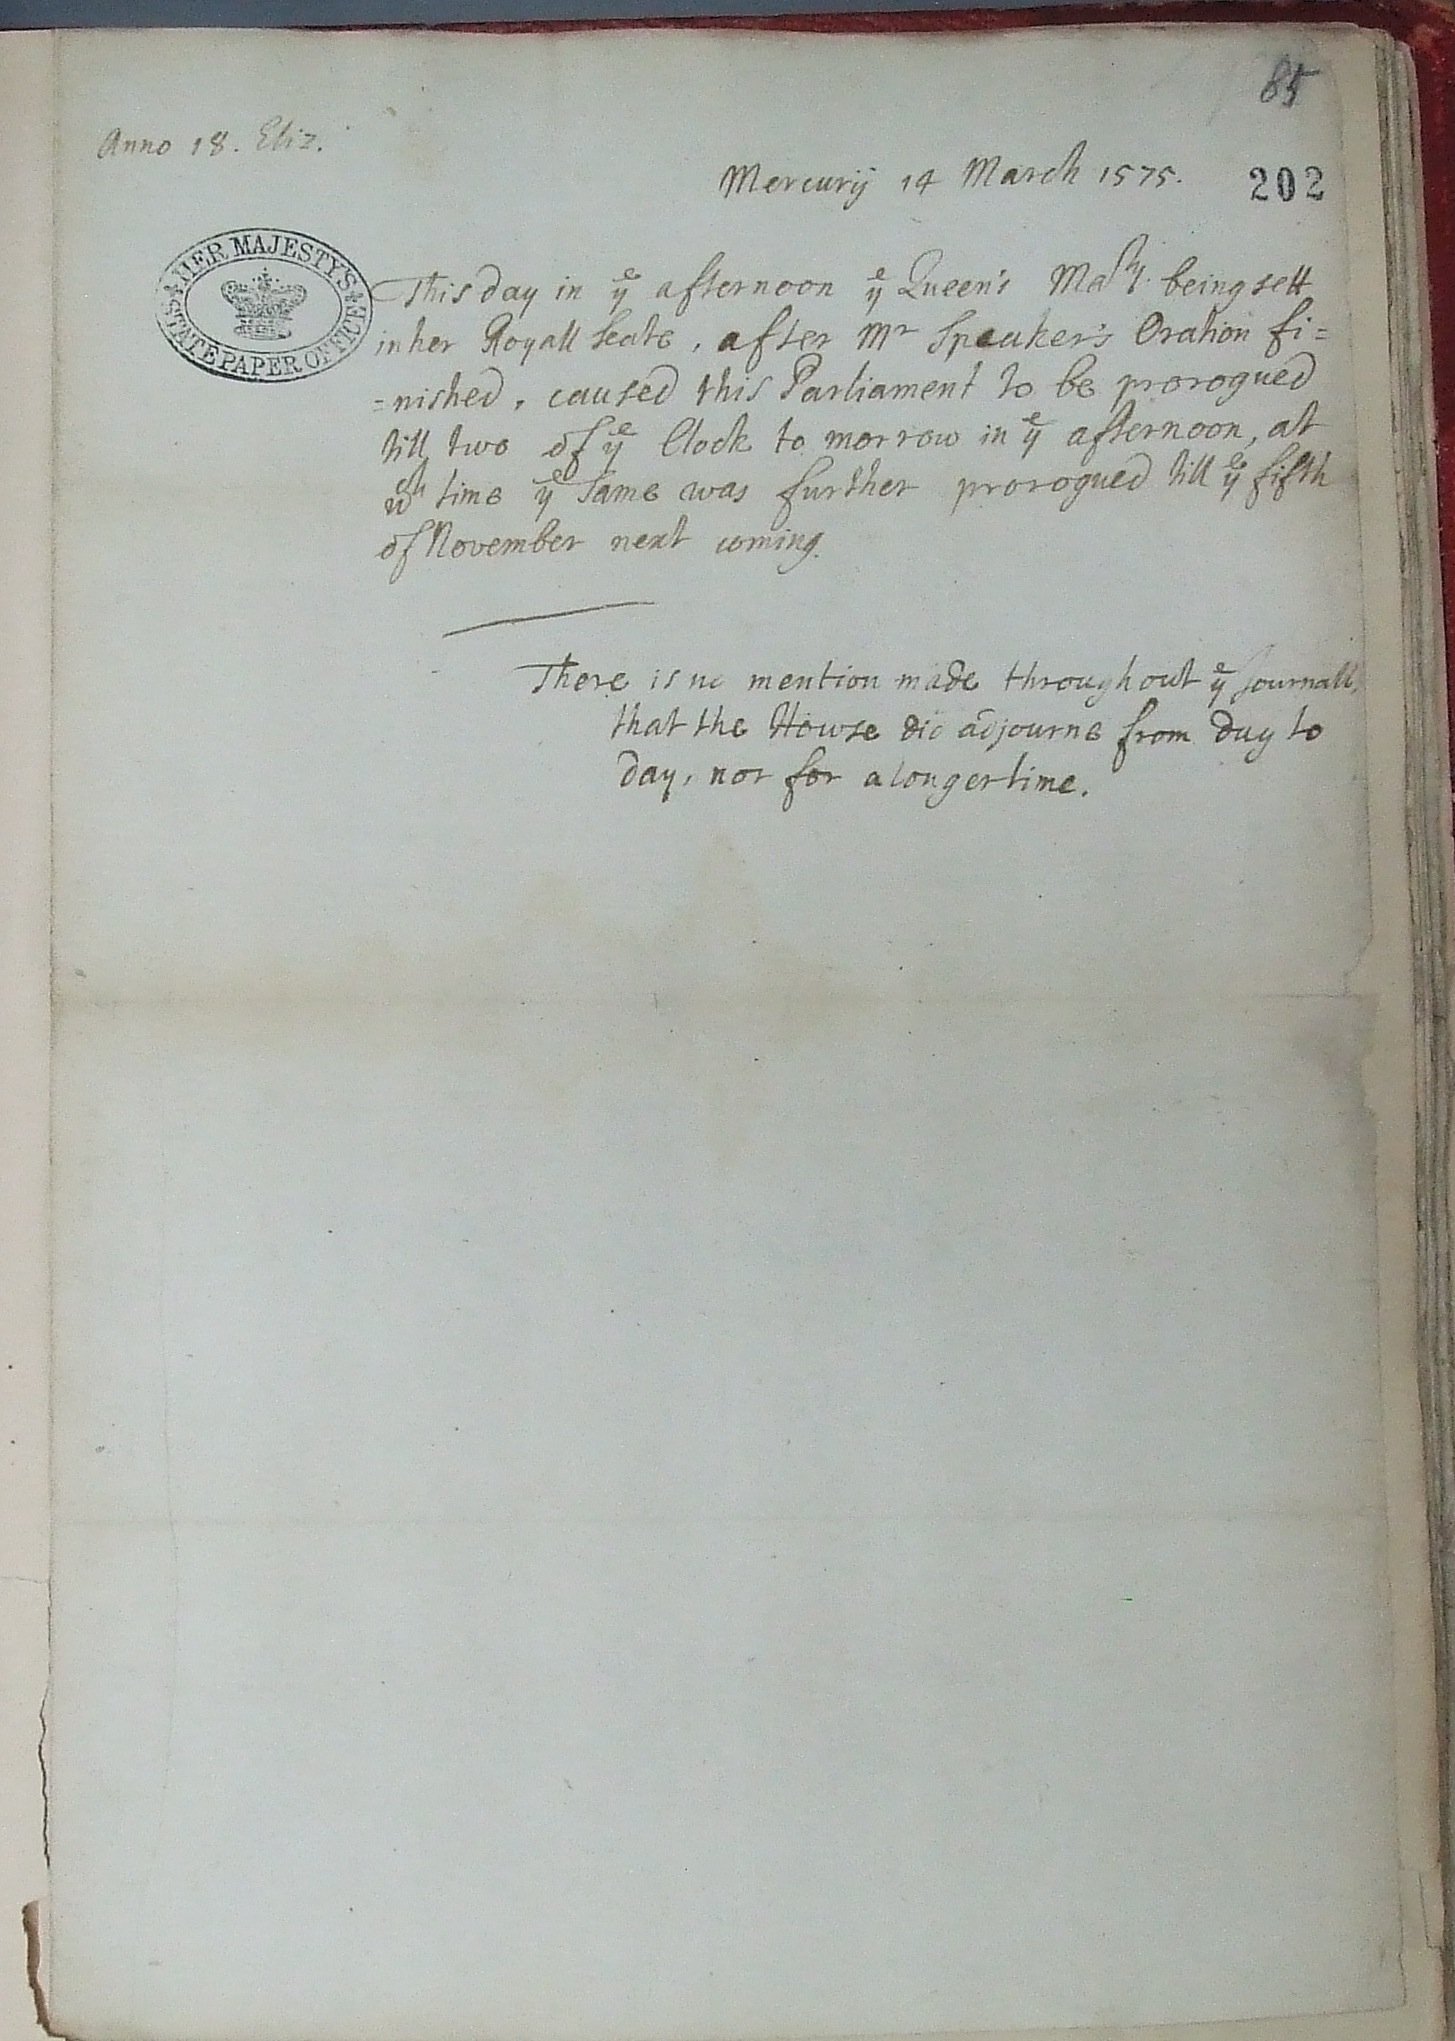 85
Anno 18. Eliz.
Mercurij 14 March 1575.
202
HER MAJESTY'S STATE PAPER OFFICE
This day in yᵉ afternoon yᵉ Queen's Maᵗʸ. being sett
in her Royall Seate, after Mʳ Speaker's Oration fi=
=nished, caused this Parliament to be prorogued
till two of yᵉ Clock to morrow in yᵉ afternoon, at
wᶜʰ time yᵉ same was further prorogued till yᵉ fifth
of November next coming.
There is no mention made throughout yᵉ Journall,
that the Howse did adjourne from day to
day, nor for a longer time.